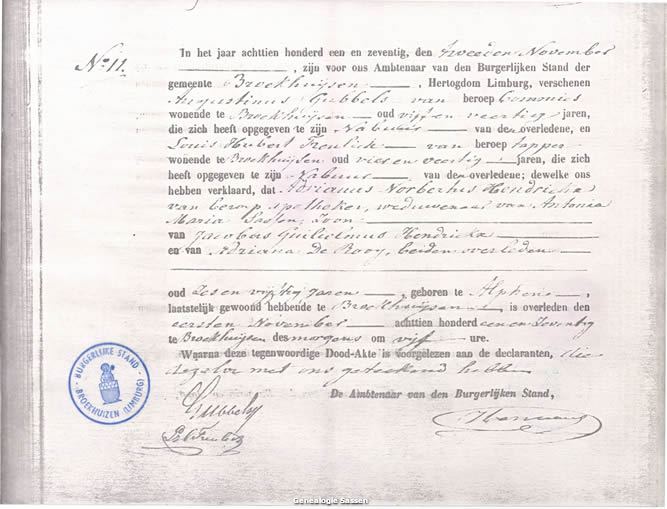 No. 11.
In het jaar achttien honderd een en zeventig, den tweeden November
, zijn voor ons Ambtenaar van den Burgerlijken Stand der
gemeente Broekhuijsen , Hertogdom Limburg, verschenen
Augustinus Gubbels van beroep Commies
wonende te Broekhuijsen oud vijf en veertig jaren,
die zich heeft opgegeven te zijn Nabuur van den overledene, en
Louis Hubert van beroep tapper
wonende te Broekhuijsen oud vier en veertig jaren, die zich
heeft opgegeven te zijn Nabuur van den overledene; dewelke ons
hebben verklaard, dat Adrianus Norbertus Hendrickx
van beroep apotheker, weduwenaar van Antonia
Maria Sassen, Zoon
van Jacobus Guilielmus Hendrickx
en van Adriana De Rooy, beiden overleden
oud Zes en vijftig jaren , geboren te Alphen ,
laatstelijk gewoond hebbende te Broekhuijsen , is overleden den
eersten November achttien honderd een en Zeventig
te Broekhuijsen des morgens om vijf ure.
Waarna deze tegenwoordige Dood-Akte is voorgelezen aan de declaranten, die
dezelve met ons geteekend hebben
De Ambtenaar van den Burgerlijken Stand,
Gubbels
BURGERLIJKE STAND
BROEKHUIZEN (LIMBURG)
Genealogie Sassen